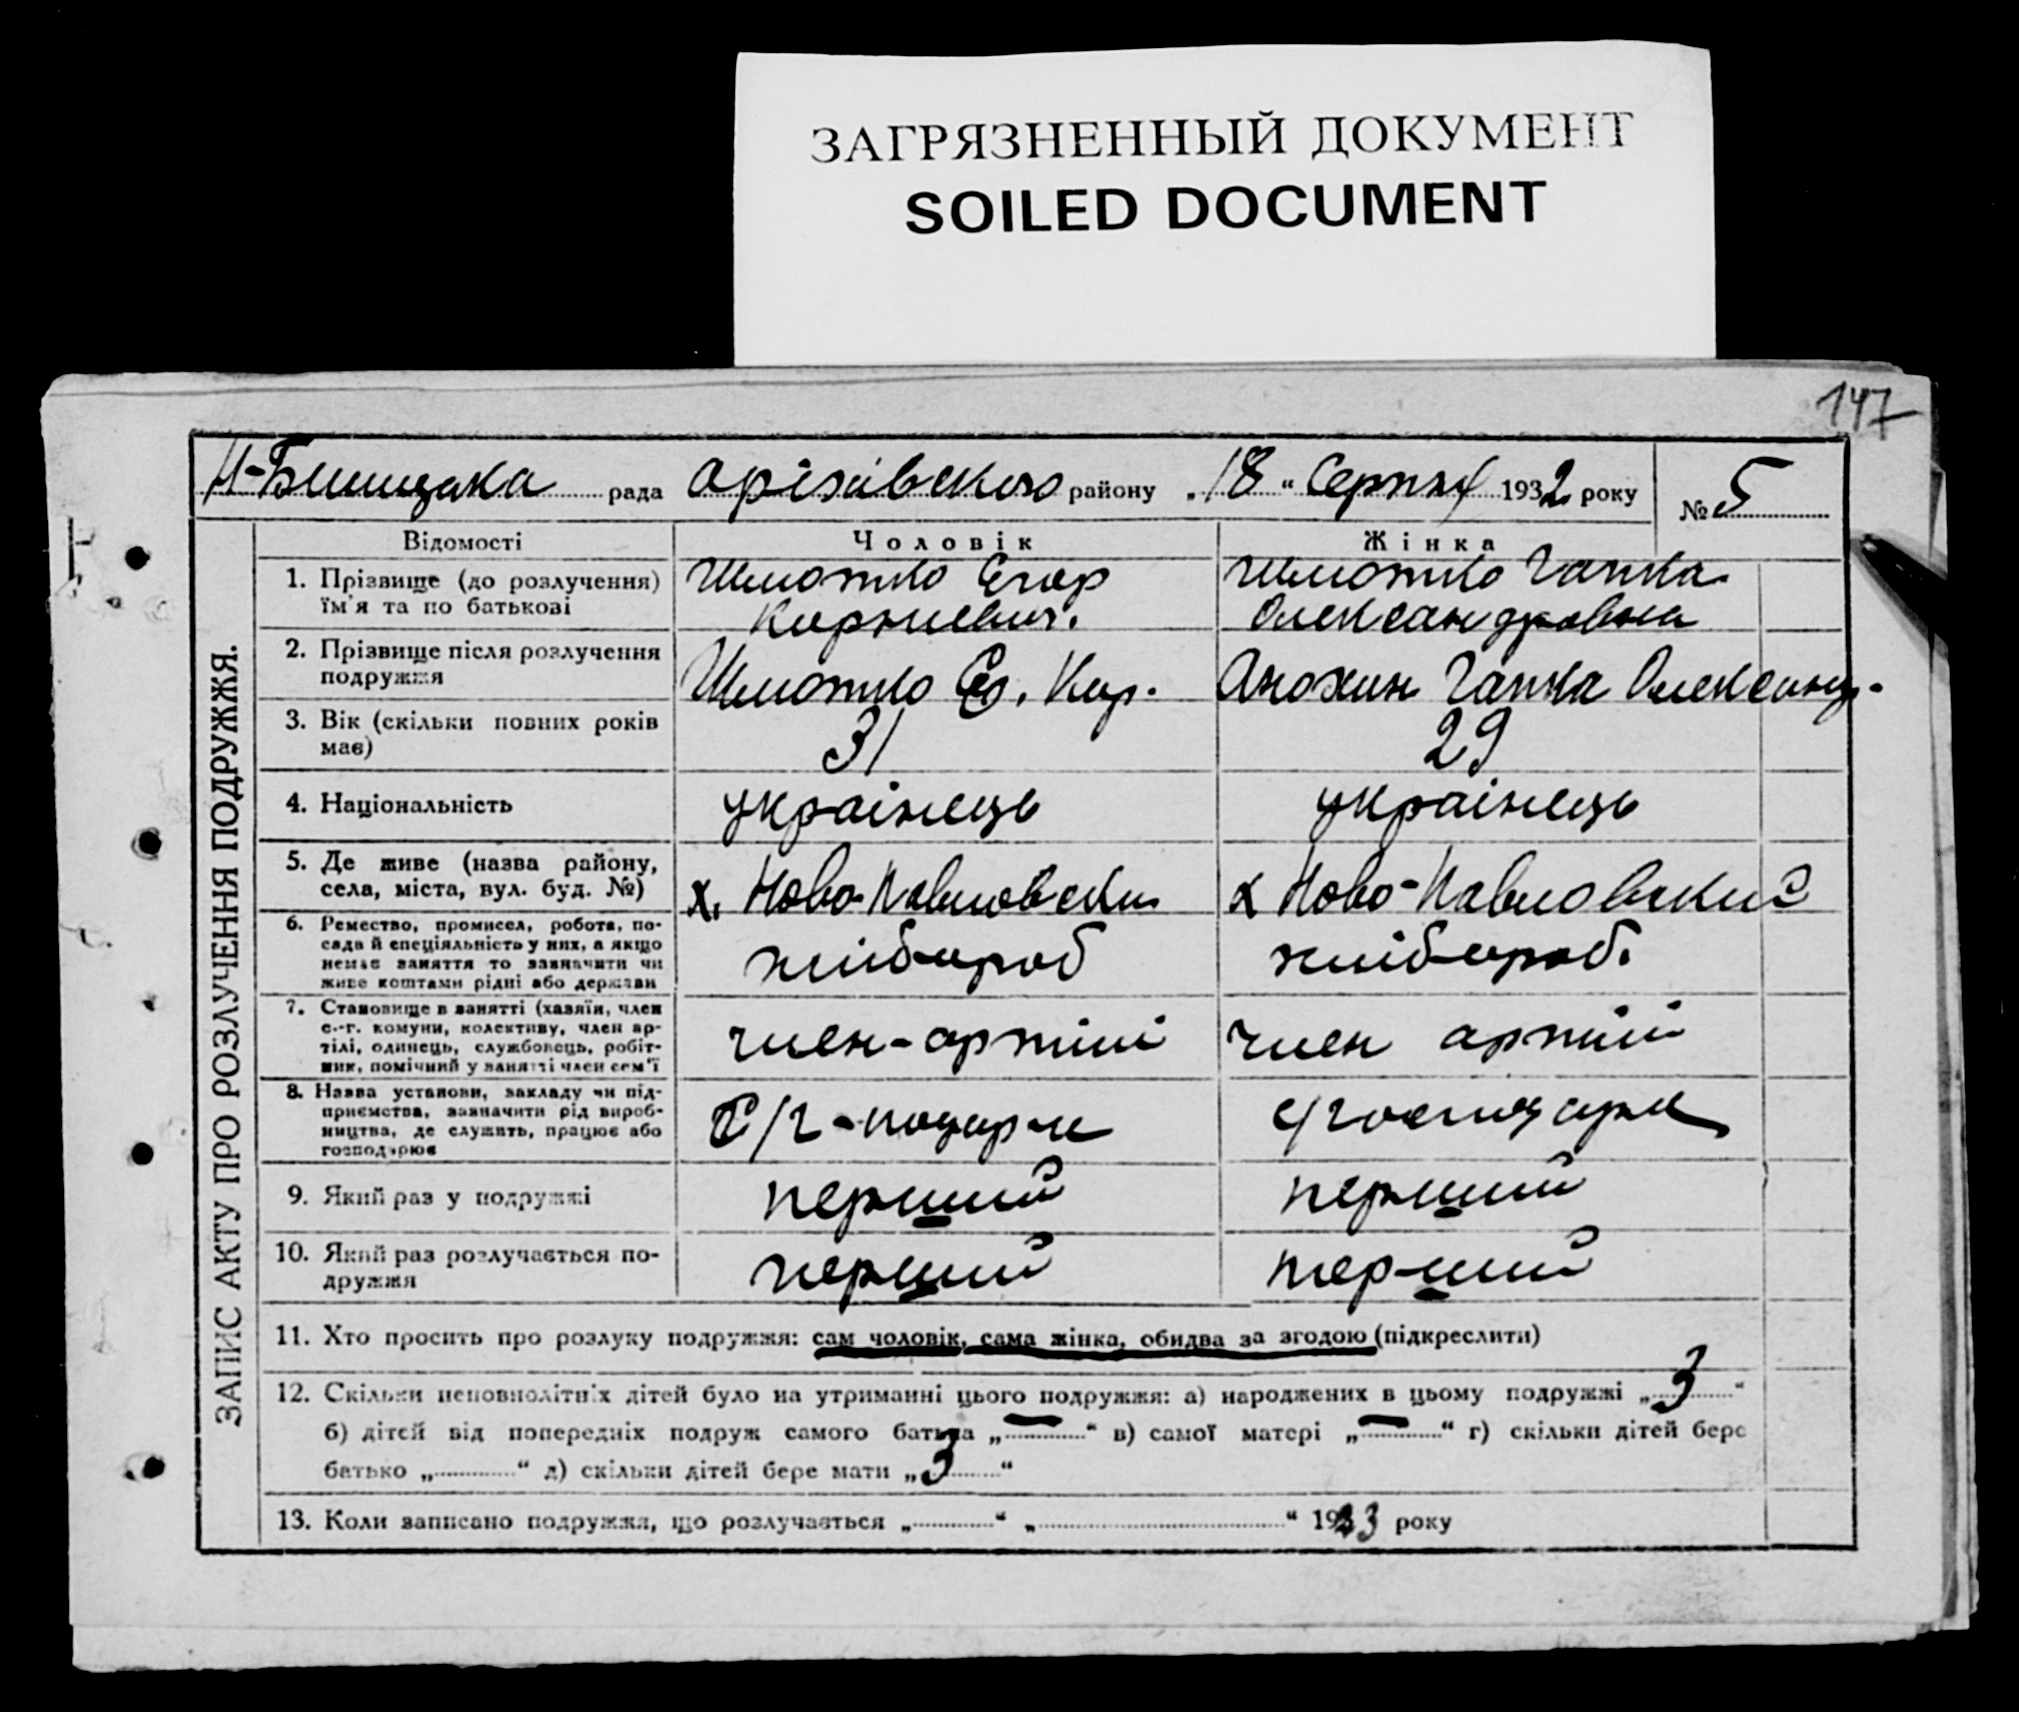 ЗАГРЯЗНЕННЫЙ ДОКУМЕНТ
SOILED DOCUMENT
147
рада району „18“ Серпня 1932 року № 5
ЗАПИС АКТУ ПРО РОЗЛУЧЕННЯ ПОДРУЖЖЯ.
Відомості Чоловік Жінка
1. Прізвище (до розлучення) Шмотко Єгор Шмотко Гапка
їм'я та по батькові Олександровна
2. Прізвище після розлучення Шмотко Єг. Кир. Анохин Гапка Олександ.
подружжя
3. Вік (скільки повних років 31 29
має)
4. Національність українець українець
5. Де живе (назва району, х. Ново-Павловски х Ново-Павловский
села, міста, вул. буд. №)
6. Ремество, промисел, робота, по-
сада й спеціяльність у них, а якщо хлібороб хлібороб.
немає заняття то зазначити чи
живе коштами рідні або держави
7. Становище в занятті (хазяїн, член
с.-г. комуни, колективу, член ар- член-артілі член артілі
тілі, одинець, службовець, робіт-
ник, помічний у занятті член сем'ї
8. Назва установи, закладу чи під-
приємства, зазначити рід вироб- С/г
ництва, де служить, працює або
господарює
9. Який раз у подружжі перший перший
10. Який раз розлучається по- перший перший
дружжя
11. Хто просить про розлуку подружжя: сам чоловік, сама жінка, обидва за згодою (підкреслити)
12. Скільки неповнолітніх дітей було на утриманні цього подружжя: а) народжених в цьому подружжі „3“
б) дітей від попередніх подруж самого батька „—“ в) самої матері „—“ г) скільки дітей бере
батько „ “ д) скільки дітей бере мати „3“
13. Коли записано подружжя, що розлучається „ “ „ “ 1923 року